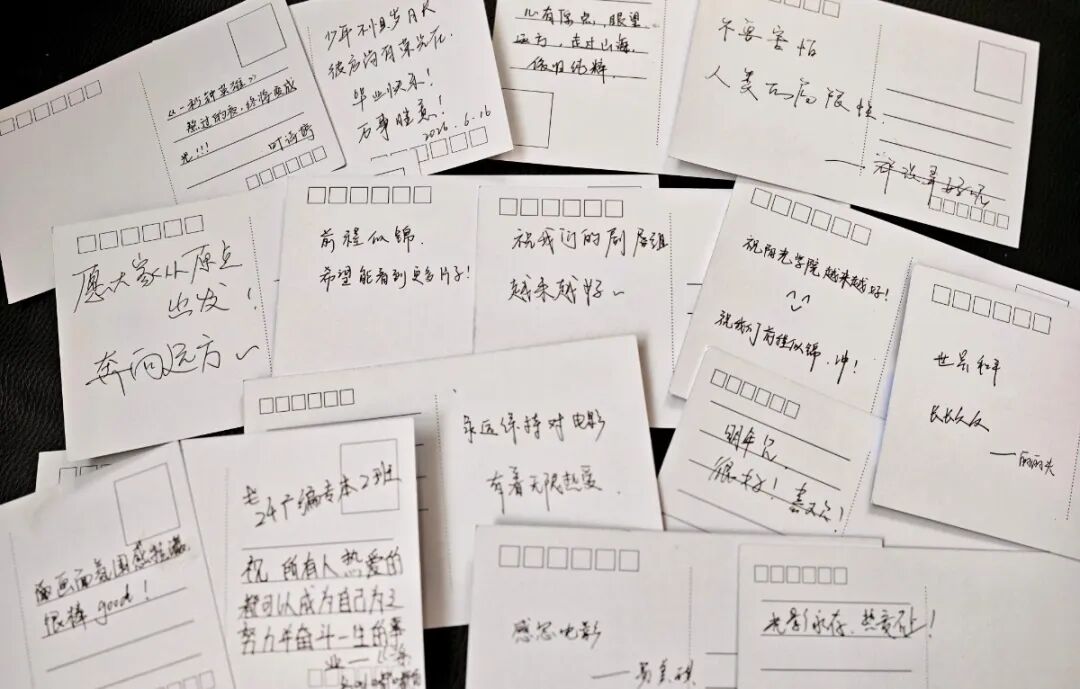 《一秒钟英雄》
熬过的夜,终将变成
光!!!
叶诗婷
少年不惧岁月长
彼方尚有荣光在.
毕业快乐!
万事胜意!
2026.6.16
心有原点,眼望
远方,走过山海,
依旧纯粹.
不要害怕
人类的局限性.
愿大家从原点
出发!
奔向远方~
前程似锦.
希望能看到更多片子!
祝我们的剧组
越来越好~
祝阳光学院越来越好!
祝我们前程似锦.冲!
世界和平
长长久久
永远保持对电影
有着无限热爱.
明年见.
很好!喜欢!
画面氛围感拉满
很棒good!
24广编专本2班
祝所有人热爱的
都可以成为自己为之
努力并奋斗一生的事
业
感恩电影
光影永存,热爱